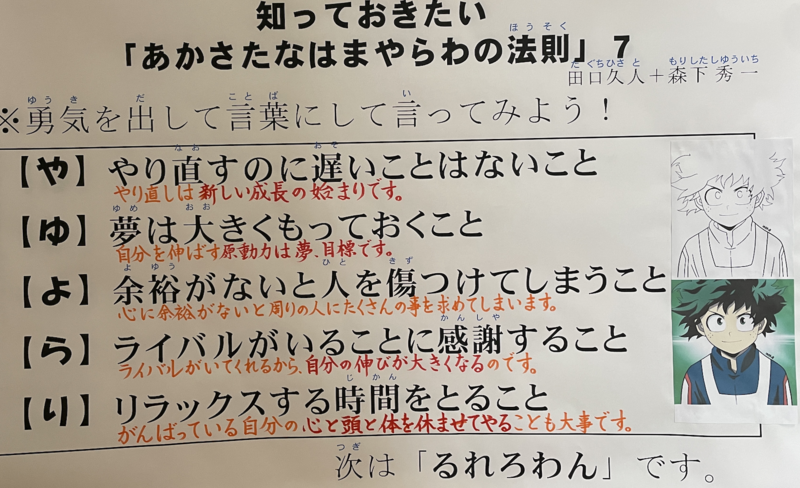 知っておきたい
「あかさたなはまやらわの法則」7
田口久人+森下秀一
※勇気を出して言葉にして言ってみよう！
【や】やり直すのに遅いことはないこと
やり直しは新しい成長の始まりです。
【ゆ】夢は大きくもっておくこと
自分を伸ばす原動力は夢、目標です。
【よ】余裕がないと人を傷つけてしまうこと
心に余裕がないと周りの人にたくさんの事を求めてしまいます。
【ら】ライバルがいることに感謝すること
ライバルがいてくれるから、自分の伸びが大きくなるのです。
【り】リラックスする時間をとること
がんばっている自分の心と頭と体を休ませてやることも大事です。
次は「るれろわん」です。